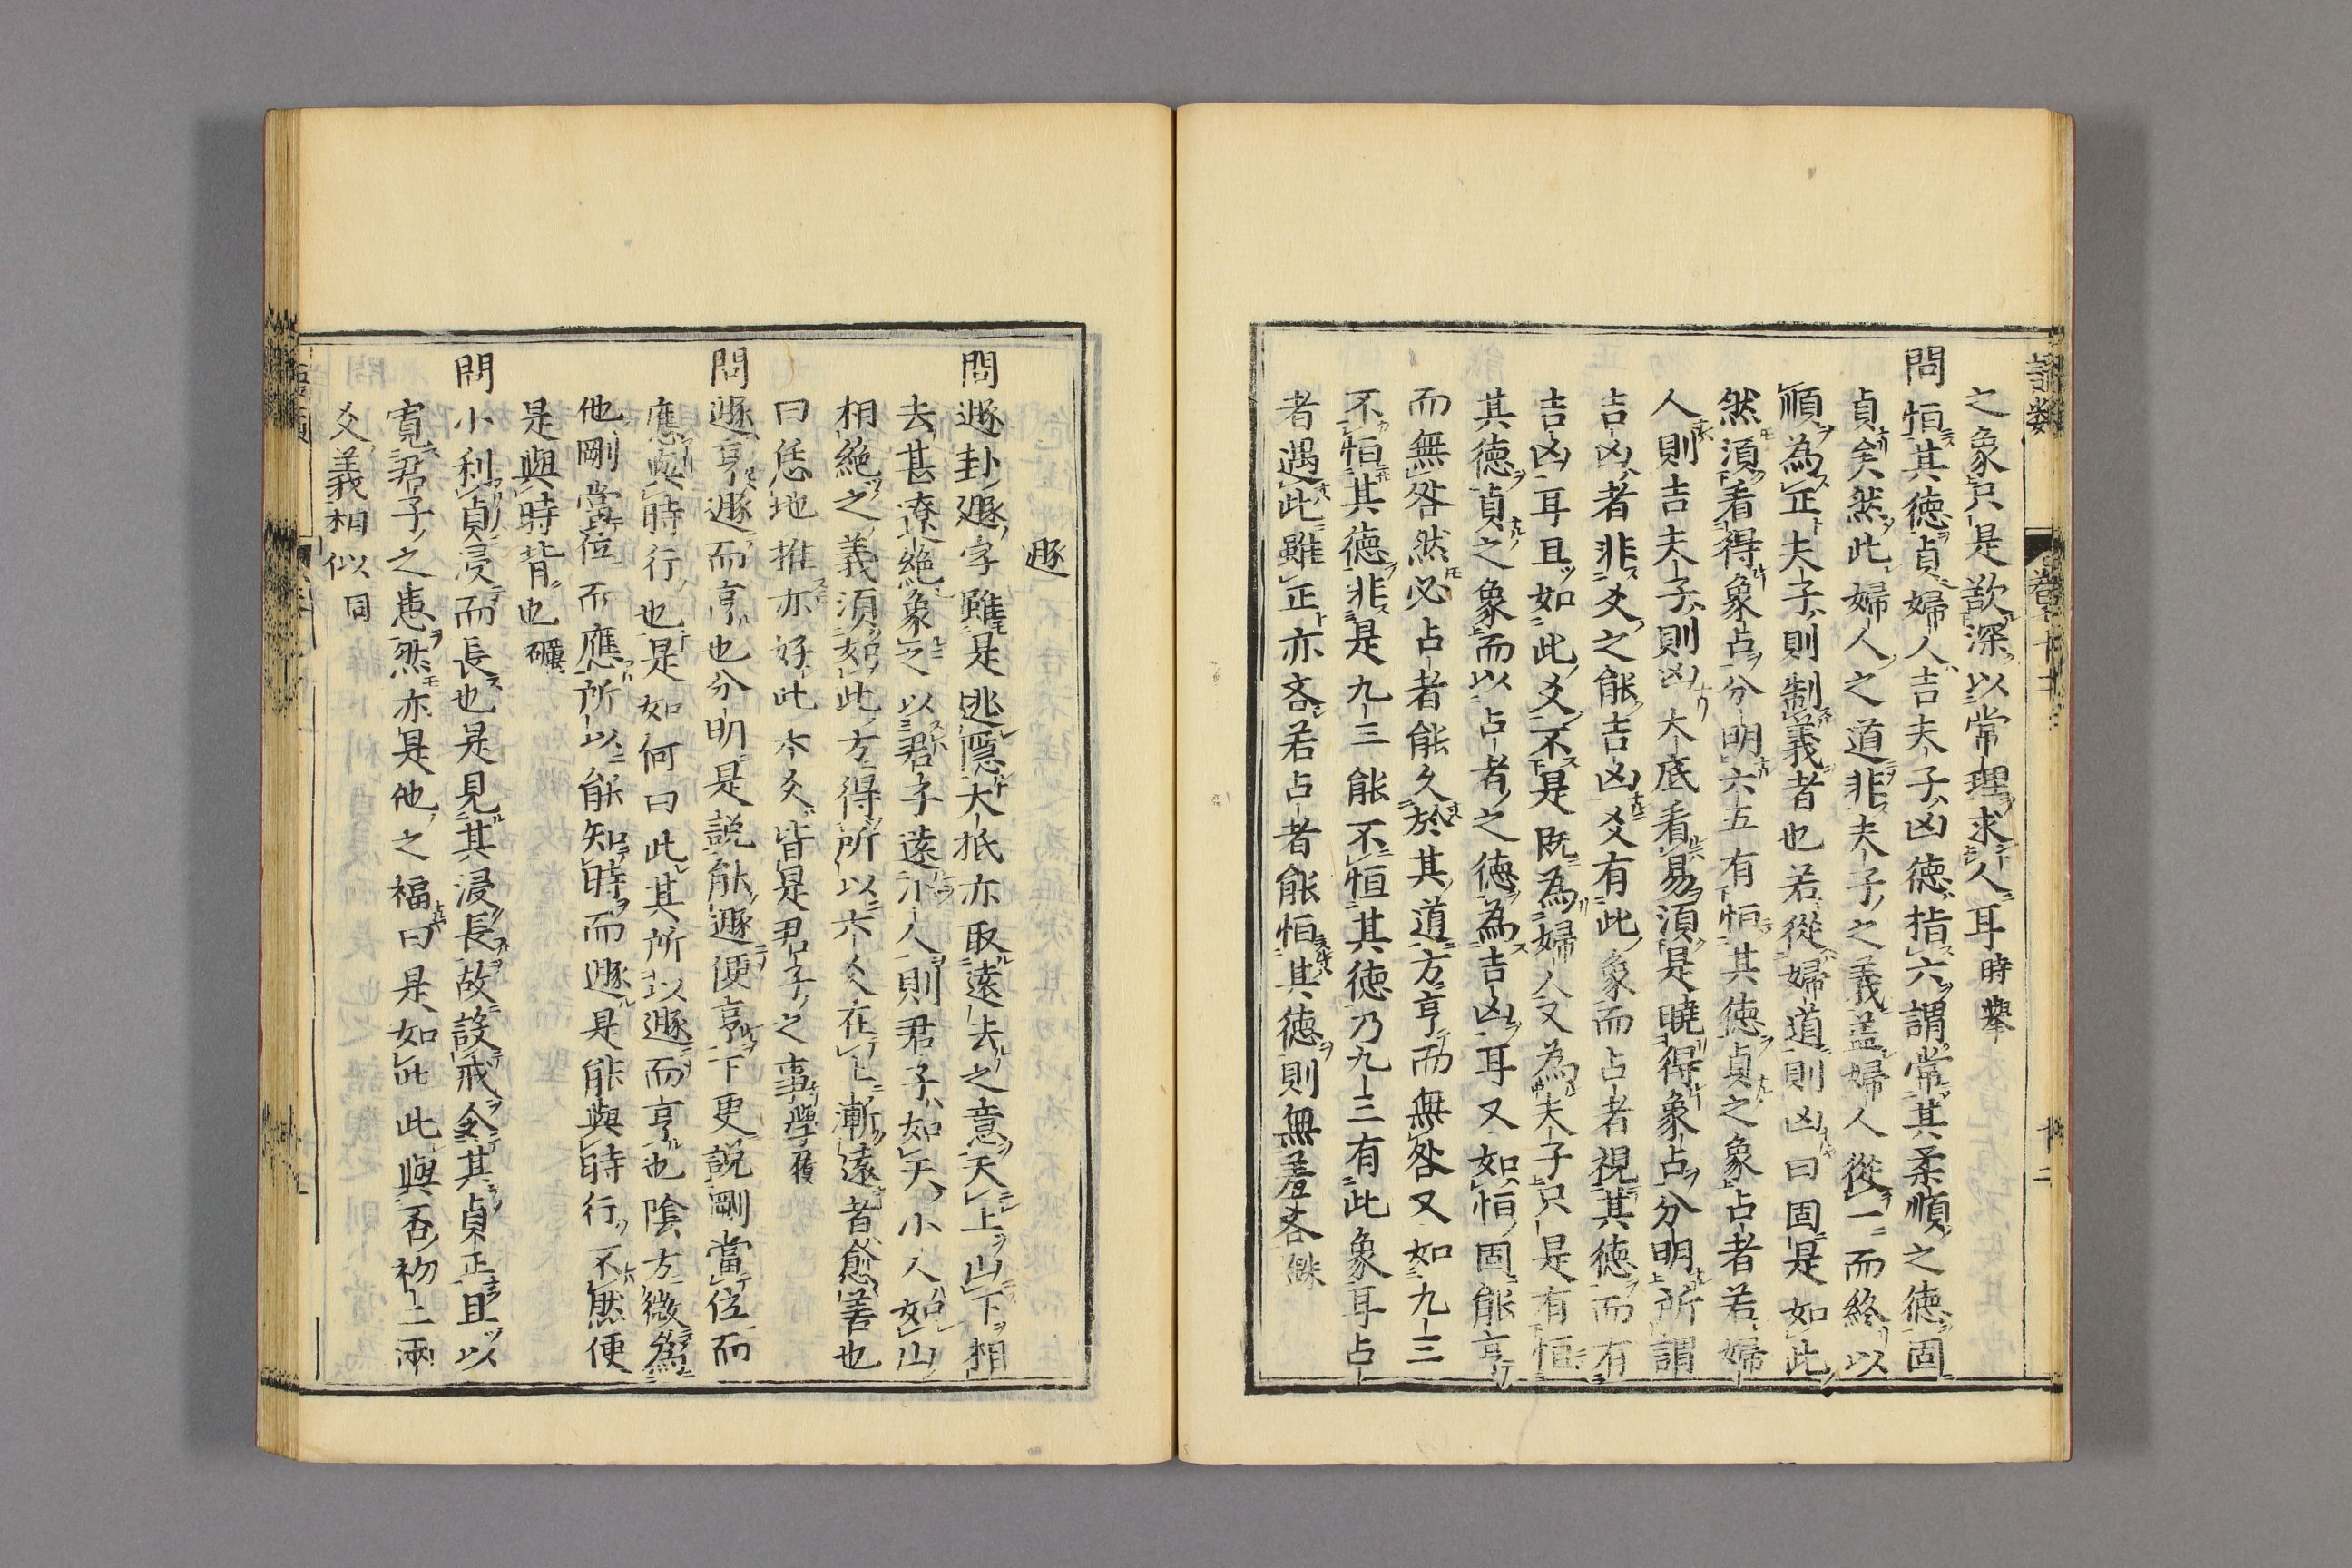 之象只是欲深以常理求人耳時擧
問恒其徳貞婦人吉夫子凶徳指六謂常其柔順之徳固
貞矣然此婦人之道非夫子之義盖婦人從一而終以
順為正夫子則制義者也若從婦道則凶曰固是如此
然須看得象占分明六五有恒其徳貞之象占者若婦
人則吉夫子則凶大底看易須是曉得象占分明所謂
吉凶者非爻之能吉凶爻有此象而占者視其徳而有
吉凶耳且如此爻不是既為婦人又為夫子只是有恒
其徳貞之象而以占者之徳為吉凶耳又如恒固能亨
而無咎然必占者能久於其道方亨而無咎又如九三
不恒其徳非是九三能不恒其徳乃九三有此象耳占
者遇此雖正亦吝若占者能恒其徳則無羞吝
遯
問遯卦遯字雖是逃隱大抵亦取遠去之意天上山下相
去甚遼絶象之以君子遠小人則君子如天小人如山
相絶之義須如此方得所以六爻在上漸遠者愈善也
曰恁地推亦好此六爻皆是君子之事學履
問遯亨遯而亨也分明是説能遯便亨下更説剛當位而
應與時行也是如何曰此其所以遯而亨也陰方微為
他剛當位而應所以能知時而遯是能與時行不然便
是與時背也礪
問小利貞浸而長也是見其浸長故設戒令其貞正且以
寛君子之患然亦是他之福曰是如此此與否初二兩
爻義相似同